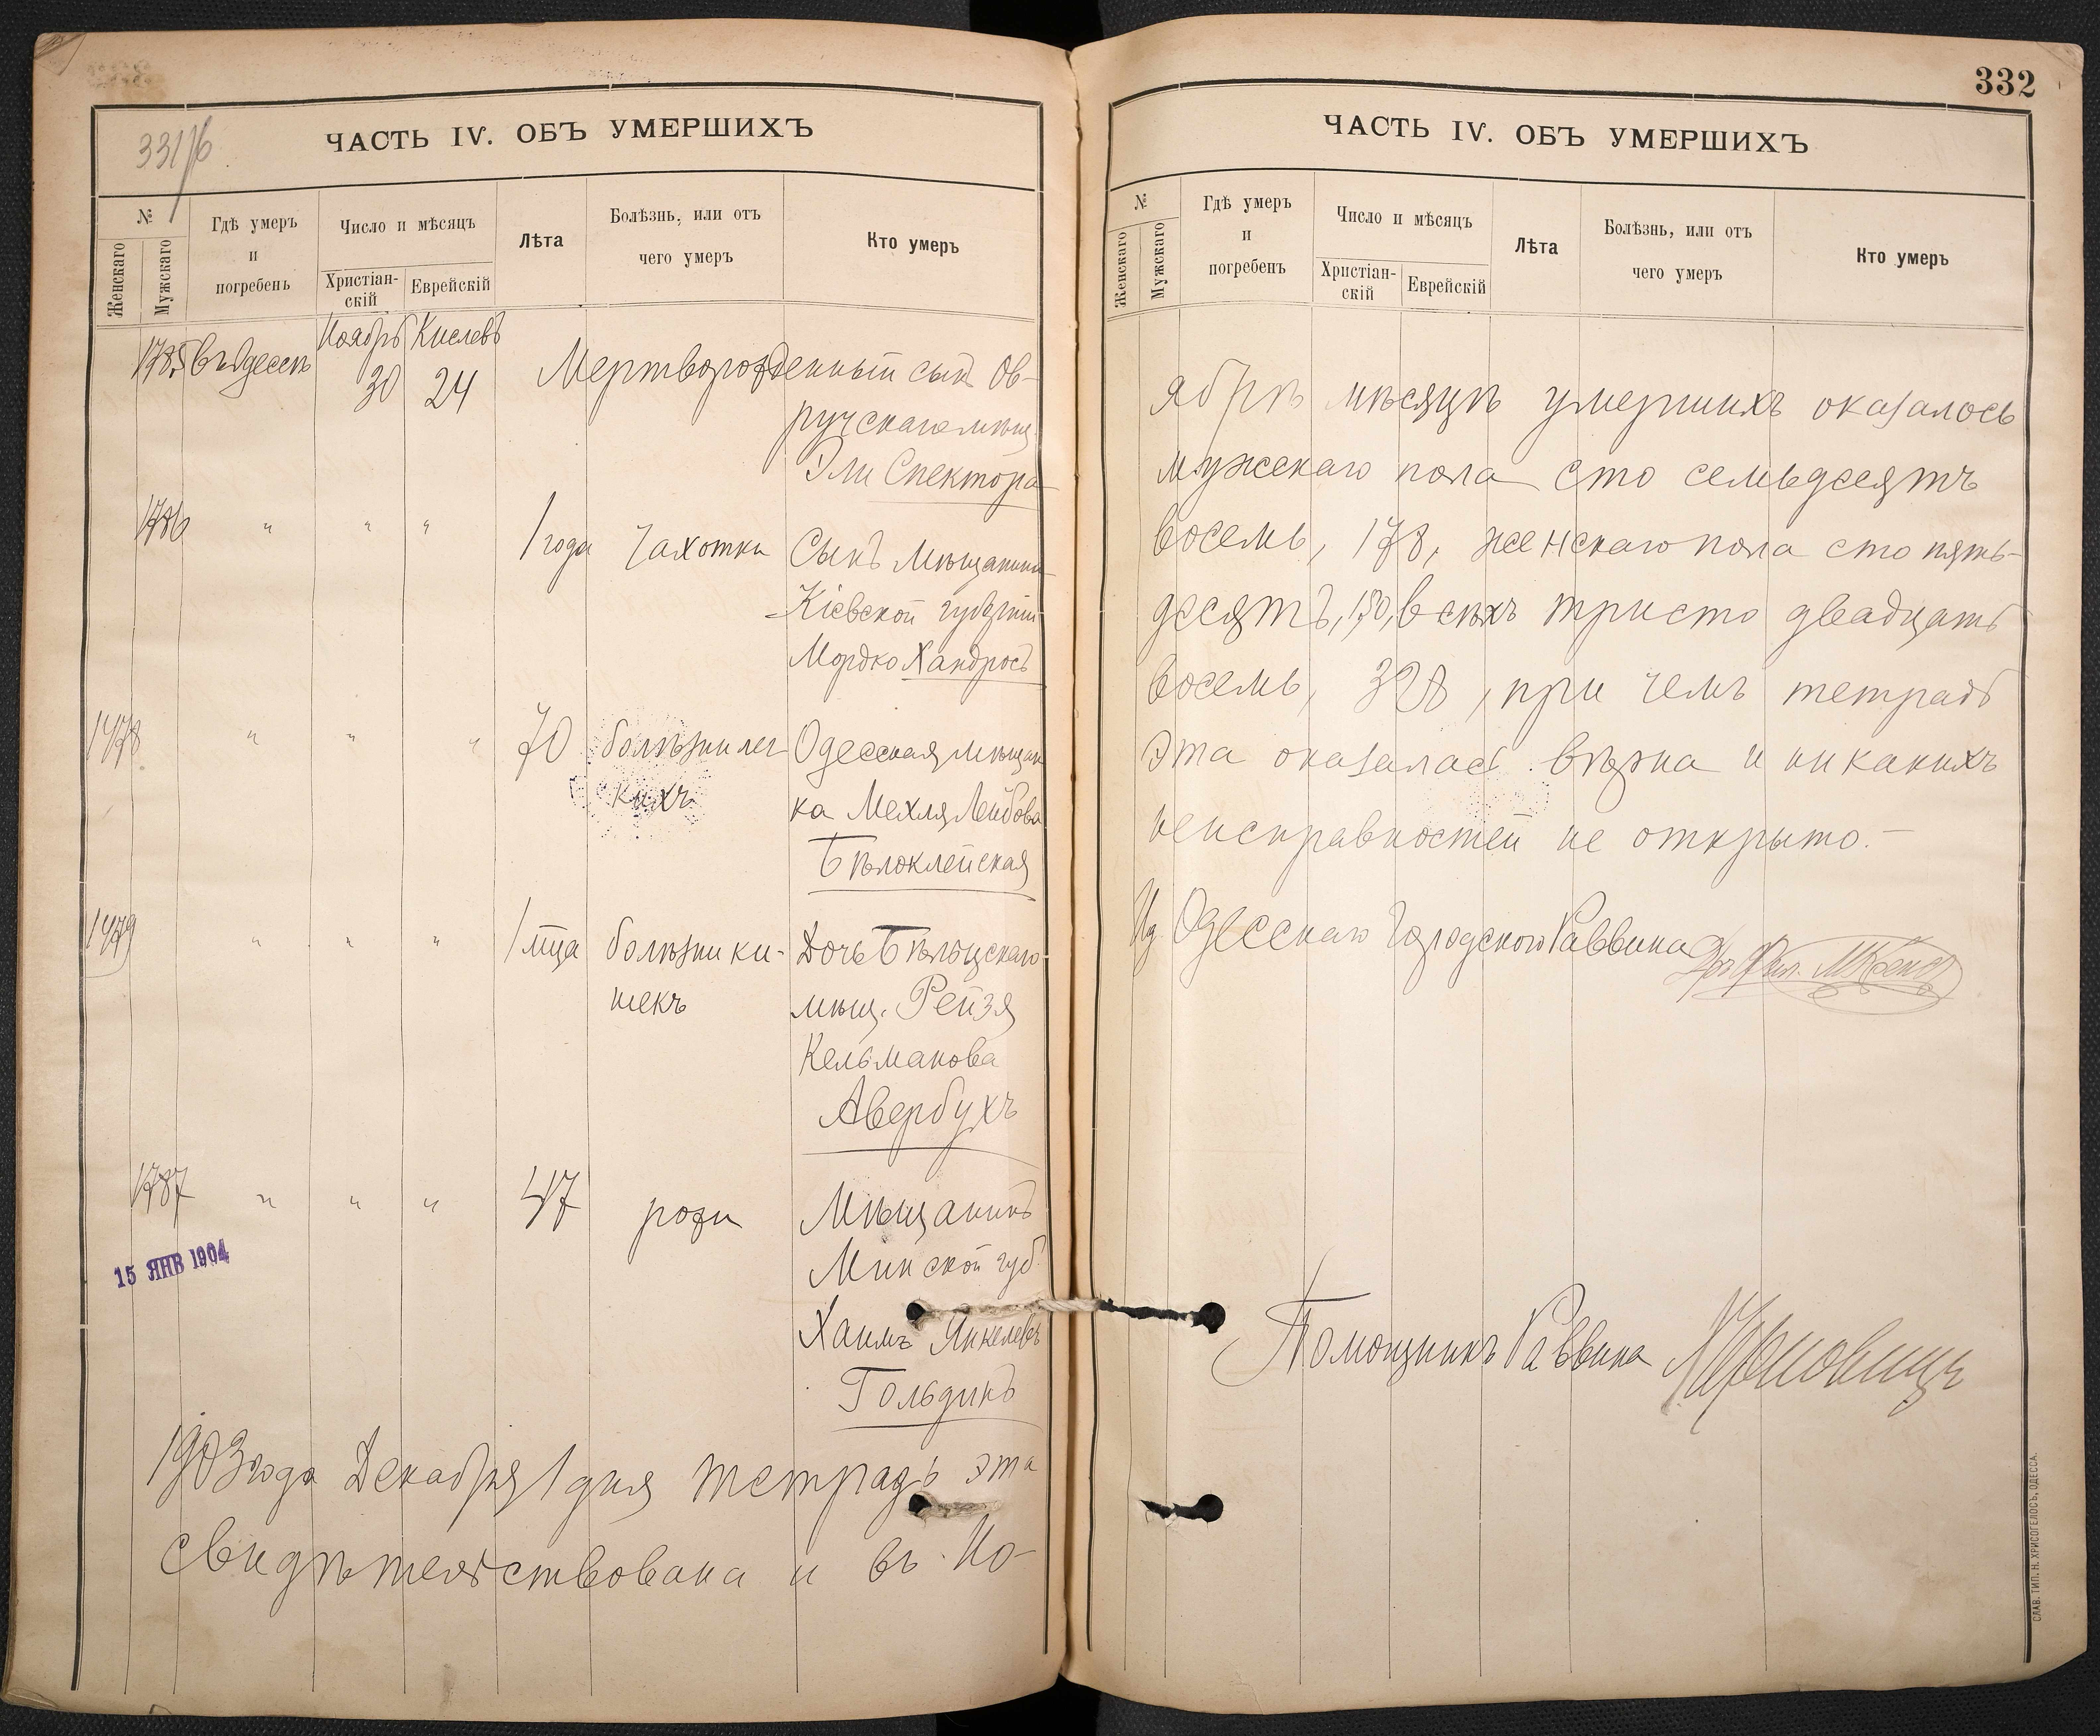 331/16
ЧАСТЬ IV. ОБЪ УМЕРШИХЪ
№
Женскаго
Мужскаго
Гдѣ умеръ
и
погребенъ
Число и мѣсяцъ
Христіан-
скій
Еврейскій
Лѣта
Болѣзнь, или отъ
чего умеръ
Кто умеръ
Ноябрь Кислевъ
1785 въ Одессѣ 30 24 Мертворожденный сынъ Ов-
ручскаго мѣщ.
Эли Спектора
1786 " " " 1 года чахотки Сынъ мѣщанина
Кіевской губерніи
Мордко Хандросъ
1478 " " " 70 болѣзни лег- Одесская мѣщан
кихъ ка Мехля Лейбова
Бѣлоклейская
1479 " " " 1 мца болѣзни ки- Дочь Бѣльцскаго
шекъ мѣщ. Рейзя
Кельманова
Авербухъ
1787 " " " 47 рожи Мѣщанинъ
Минской губ.
15 ЯНВ 1904
Хаимъ Янкелевъ
Гольдинъ
1903 года Декабря 1 дня тетрадь эта
свидѣтельствована и въ Но-
332
ЧАСТЬ IV. ОБЪ УМЕРШИХЪ
№
Женскаго
Мужскаго
Гдѣ умеръ
и
погребенъ
Число и мѣсяцъ
Христіан-
скій
Еврейскій
Лѣта
Болѣзнь, или отъ
чего умеръ
Кто умеръ
ябрѣ мѣсяцѣ умершихъ оказалось
мужскаго пола сто семьдесятъ
восемь, 178, женскаго пола сто пять-
десятъ, 150, всѣхъ тристо двадцать
восемь, 328, при чемъ тетрадь
эта оказалась вѣрна и никакихъ
неисправностей не открыто.-
Ид. Одесскаго Городского Раввина
Помощникъ Раввина
СЛАВ. ТИП. Н. ХРИСОГЕЛОСЪ, ОДЕССА.